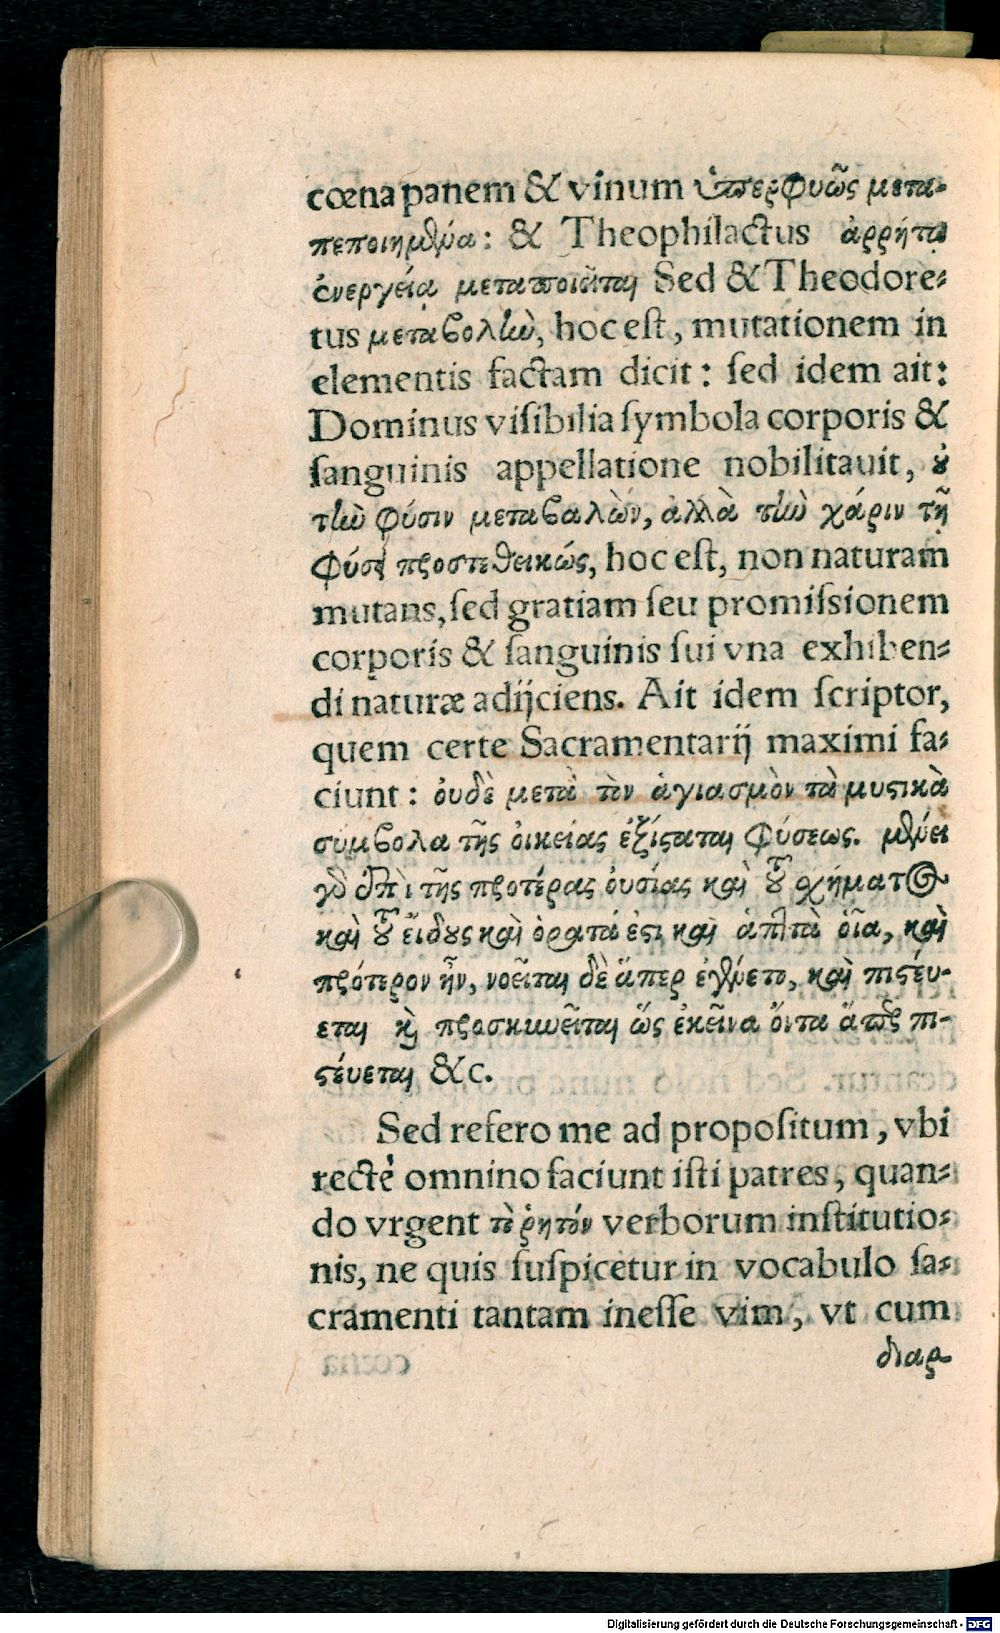 cœna panem & vinum ὑπερφυῶς μετα-
πεποιημένα: & Theophilactus ἀρρήτῳ
ἐνεργείᾳ μεταποιεῖται Sed & Theodore-
tus μεταβολὴν, hoc est, mutationem in
elementis factam dicit: sed idem ait:
Dominus visibilia symbola corporis &
sanguinis appellatione nobilitauit, οὐ
τὴν φύσιν μεταβαλὼν, ἀλλὰ τὴν χάριν τῇ
φύσει προστεθεικώς, hoc est, non naturam
mutans, sed gratiam seu promissionem
corporis & sanguinis sui vna exhiben-
di naturæ adijciens. Ait idem scriptor,
quem certe Sacramentarij maximi fa-
ciunt: ὀυδὲ μετὰ τὸν ἁγιασμὸν τὰ μυστικὰ
σύμβολα τῆς ὀικείας ἐξίσταται φύσεως. μένει
γὸ ἐπὶ τῆς προτέρας ὀυσίας καὶ τοῦ σχήματος
καὶ τοῦ εἴδους καὶ ὁρατά ἐστι καὶ ἁπτὰ ὁῖα, καὶ
πρότερον ἦν, νοεῖται δὲ ἅπερ ἐγένετο, καὶ πιστέυ-
εται καὶ προσκυνεῖται ὥς ἐκεῖνα ὄντα ἅπερ πι-
στέυεται &c.
Sed refero me ad propositum, vbi
recte omnino faciunt isti patres, quan-
do vrgent τὸ ῥητόν verborum institutio-
nis, ne quis suspicetur in vocabulo sa-
cramenti tantam inesse vim, vt cum
διαρ
Digitalisierung gefördert durch die Deutsche Forschungsgemeinschaft - DFG